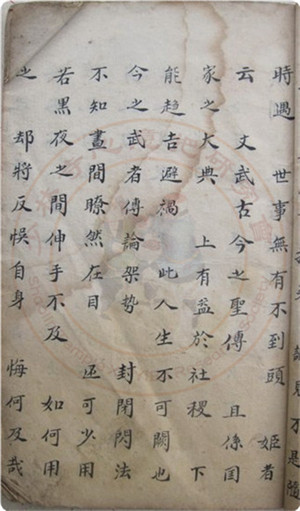 時遇 世事無有不到頭 姬者
云 文武古今之聖傳 且係囯
家之大典 上有益於社稷 下
能趋吉避禍 此人生不可闕也
今之武者傳論架势 封閉閃法
不知晝間瞭然在目 还可少用
若黑夜之間伸手不及 如何用
之 却將反悞自身 悔何及哉